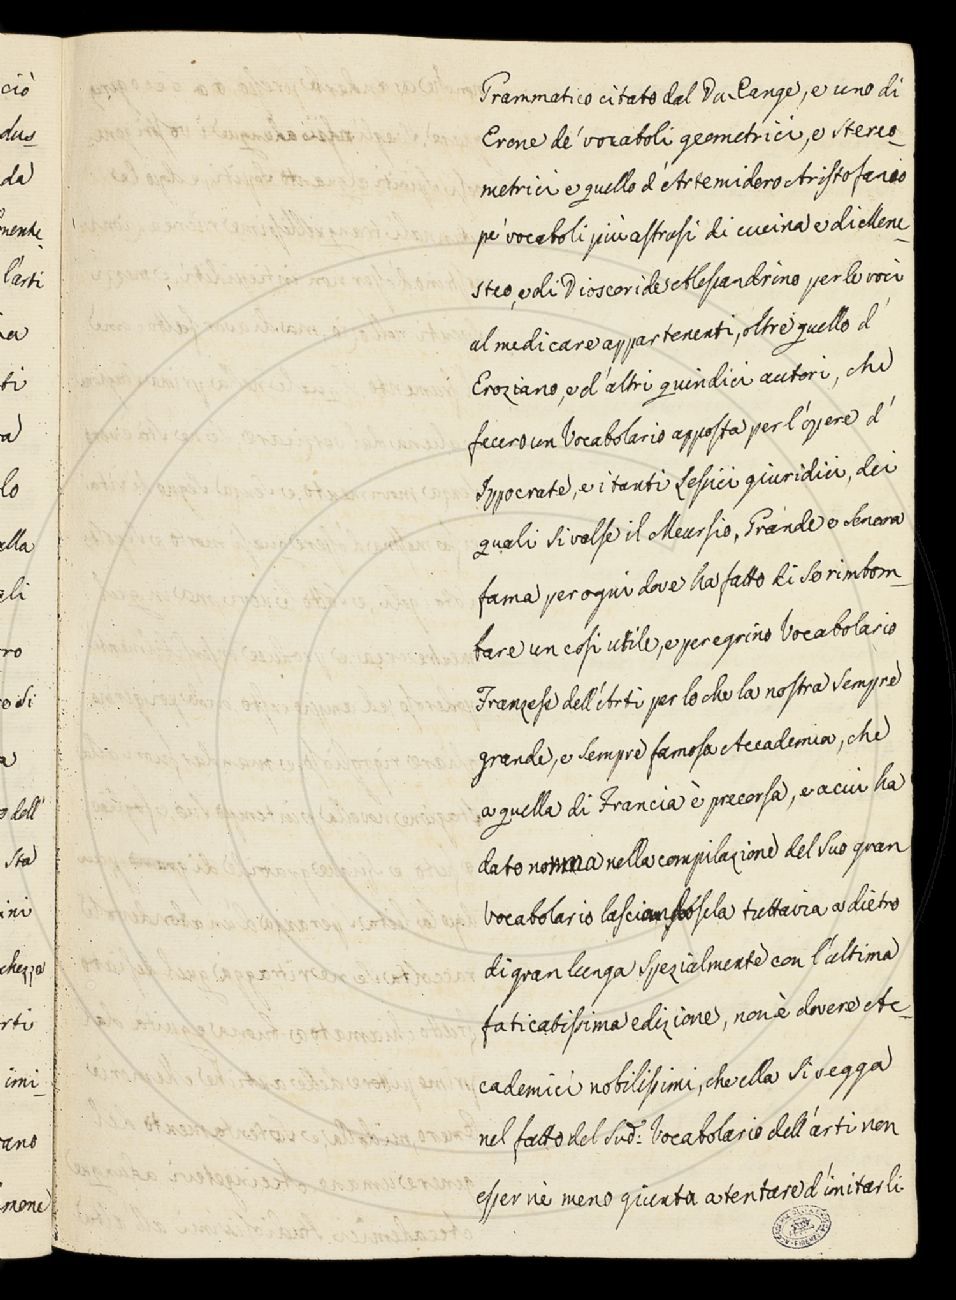 ciò
dus
da
mente
l'arti
ti
lo
alla
gli
ro
o dell'
sta
ini
chezza
rti
imi-
ano
Grammatico citato dal Du-Cange, e uno di
Erone de' vocaboli geometrici, e stereo-
metrici e quello d'Artemidoro Aristofanio
pe' vocaboli più astrusi di cucina e di
steo, e di Dioscoride Alessandrino per le voci
al medicare appartenenti, oltre quello d'
Eroziano, e d'altri quindici autori, che
fecero un Vocabolario apposta per l'opere d'
Ippocrate, e i tanti Lessici giuridici, dei
quali si valse il Meursio, Grande e sonora
fama per ogni dove ha fatto di se rimbom-
bare un così utile, e peregrino Vocabolario
Franzese dell'Arti per lo che la nostra sempre
grande, e sempre famosa Accademia, che
a quella di Francia è precorsa, e a cui ha
dato norma nella compilazione del suo gran
Vocabolario lasciandosela tuttavia a dietro
di gran lunga spezialmente con l'ultima
faticatissima edizione, non è dovere Ac-
cademici nobilissimi, che ella si vegga
nel fatto del Sud.º Vocabolario dell'arti non
esser nè meno giunta a tentare d'imitarli